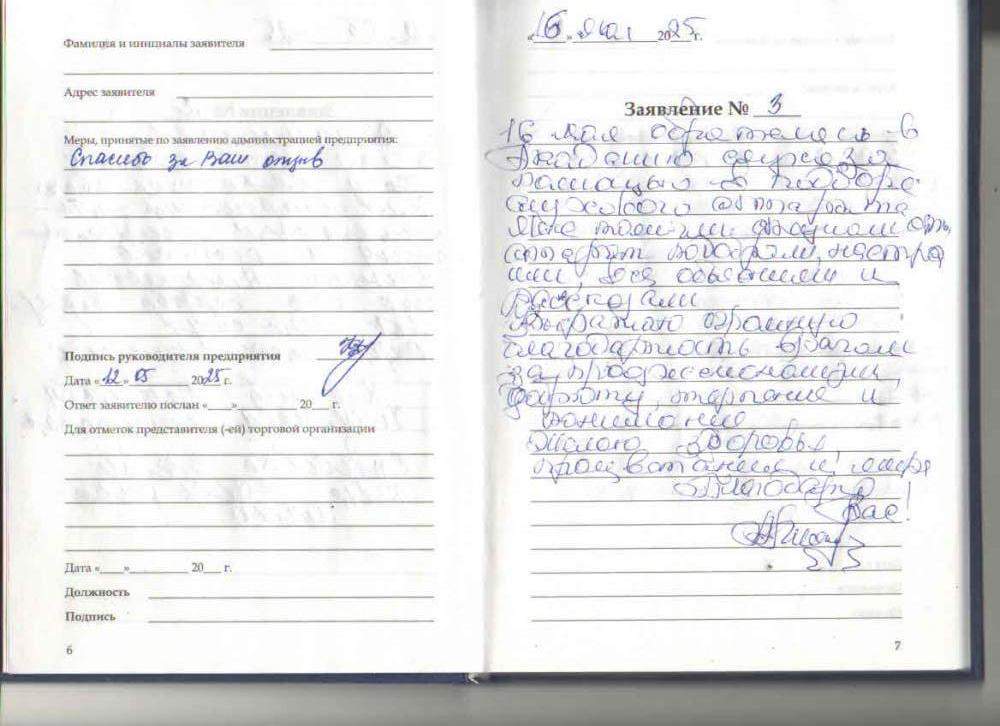 Фамилия и инициалы заявителя
Адрес заявителя
Меры, принятые по заявлению администрацией предприятия:
Спасибо за Ваш отзыв
Подпись руководителя предприятия
Дата «12» 05 2025 г.
Ответ заявителю послан «___» ________ 20__ г.
Для отметок представителя (-ей) торговой организации
Дата «___» ________ 20__ г.
Должность
Подпись
6
«16» мая 2025 г.
Заявление № 3
16 мая обратилась в
Академию слуха за
помощью в подборе
слухового аппарата
Мне
подобрали, настро
или, все объяснили и
рассказали
Выражаю огромную
благодарность врачам
за профессионализм,
доброту, терпение и
внимание
Желаю здоровья
процветания и мира
Благодарю
Вас!
7